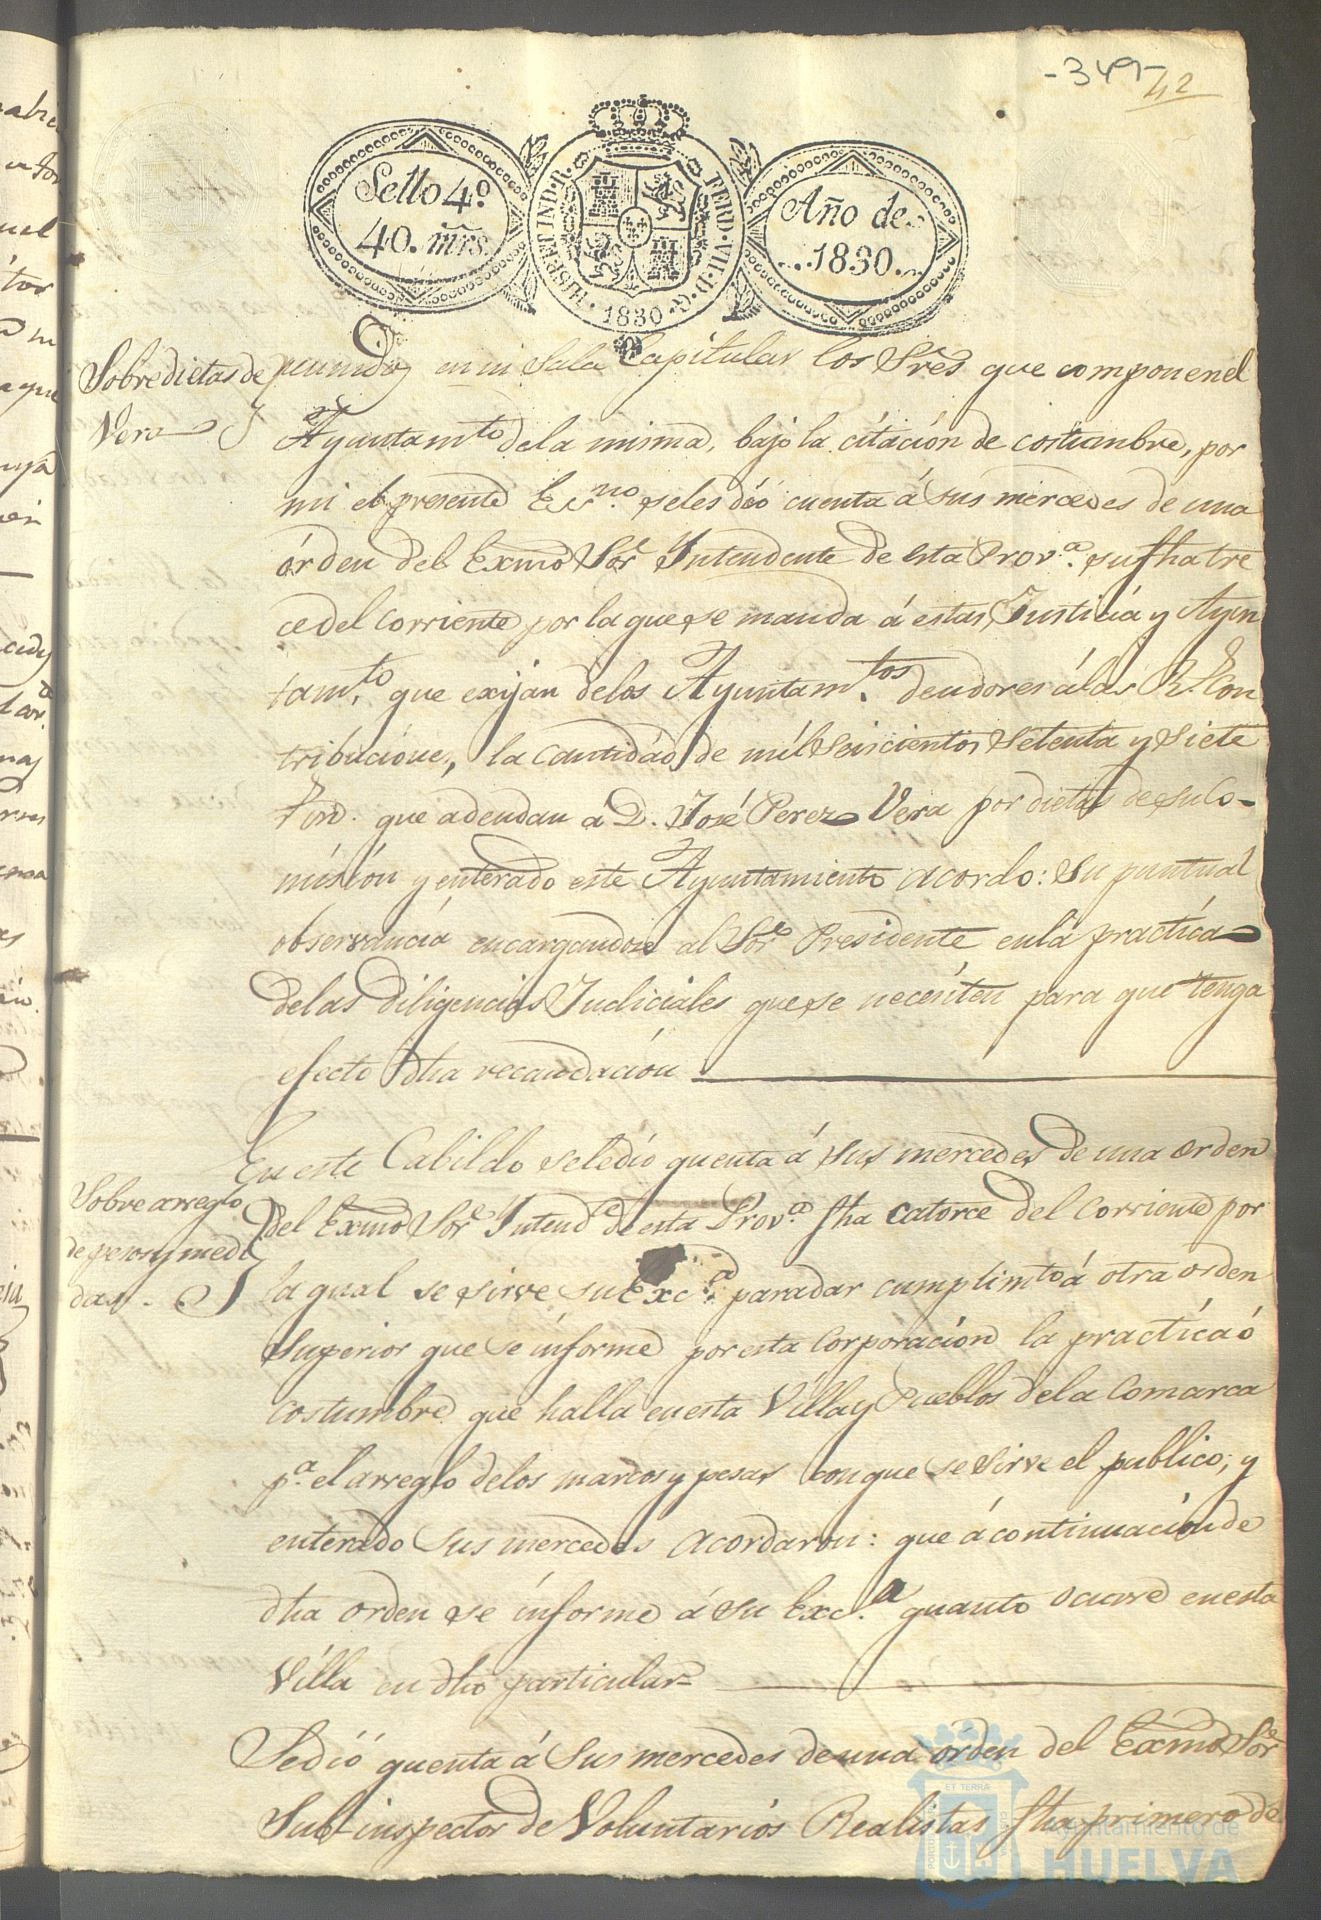 -349-
42
Sello 4º
40. mrs.
HISP. ET IND. R.
FERD. VII. D. G.
1830
Año de
1830.
Sobre dietas de
Vera
reunidos en su Sala Capitular los Sres que componen el
Ayuntamto dela misma, bajo la citación de costumbre, por
mi el presente Esno. seles dió cuenta á sus mercedes de una
órden del Exmo Sor Intendente de esta Prova. su fha tre
ce del corriente por la que se manda á estas Justicia y Ayun
tamto. que exijan delos Ayuntamtos. deudores álas Rs. Con
tribuciones, la cantidad de mil seiscientos setenta y siete
rvn. que adeudan a D. José Perez Vera por dietas de su co-
misión y enterado este Ayuntamiento acordo: Su puntual
observancia encargandose al Sor Presidente enla practica
delas diligencias Judiciales que se necesíten para que tenga
efecto dha recaudación
Sobre arreglo
de pesos y medi
das.
En este Cabildo seledió quenta á sus mercedes de una orden
del Exmo Sor Intende de esta Prova. fha catorce del corriente por
la qual se sirve su Exca. para dar cumplimto á otra orden
Superior que se ínforme por esta Corporación la practica ó
costumbre que halla en esta Villa y Pueblos dela Comarca
pa. el arreglo delos marcos y pesas con que se sirve el publico; y
enterado sus mercedes acordaron: que á continuación de
dha orden se ínforme á su Exca. quanto ocurre en esta
Villa en dho particular
Sedió quenta á sus mercedes de una órden del Exmo Sor
Sub-inspector de Voluntarios Realistas fha primero de
ET TERRÆ
Ayuntamiento de
HUELVA